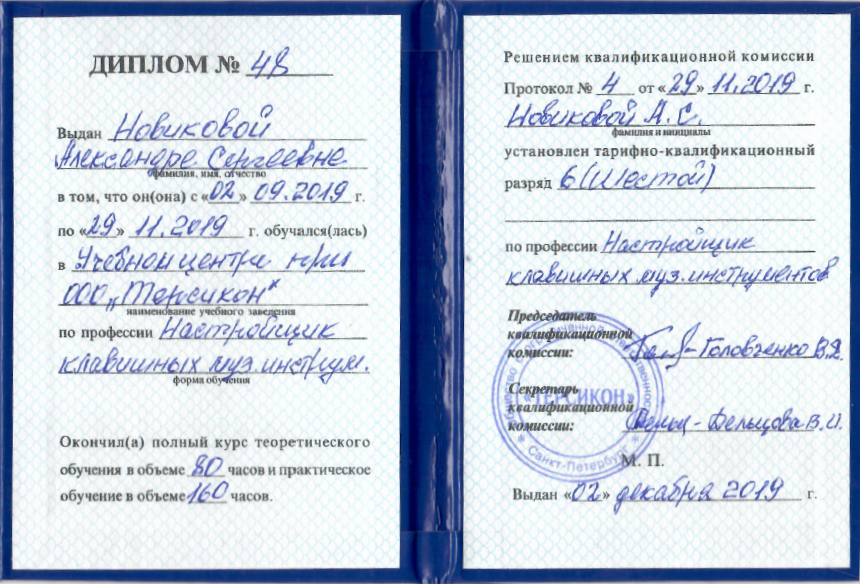 ДИПЛОМ № 48
Выдан Новиковой
Александре Сергеевне
фамилия, имя, отчество
в том, что он(она) с «02» 09.2019 г.
по «29» 11.2019 г. обучался(лась)
в Учебном центре при
ООО „Терсикон"
наименование учебного заведения
по профессии Настройщик
клавишных муз.инструм.
форма обучения
Окончил(а) полный курс теоретического
обучения в объеме 80 часов и практическое
обучение в объеме 160 часов.
Решением квалификационной комиссии
Протокол № 4 от «29» 11.2019 г.
Новиковой А.С.
фамилия и инициалы
установлен тарифно-квалификационный
разряд 6 (Шестой)
по профессии Настройщик
клавишных муз.инструментов
Председатель
квалификационной
комиссии: Головченко В.Я.
Секретарь
квалификационной
комиссии: Дельцова В.И.
«ТЕРСИКОН»
Санкт-Петербург
М. П.
Выдан «02» декабря 2019 г.